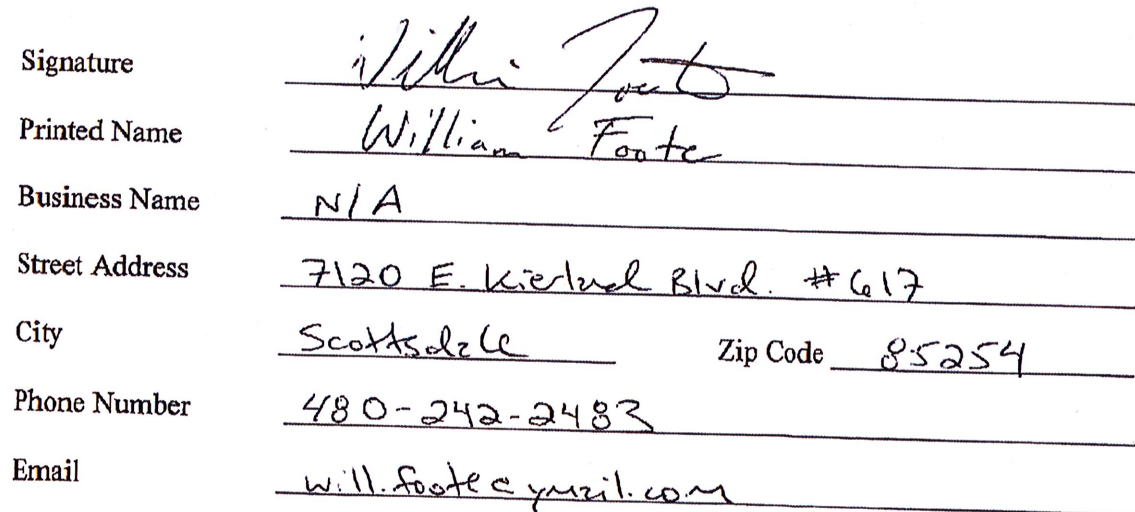 Signature William Foote
Printed Name William Foote
Business Name N/A
Street Address 7120 E. Kierland Blvd. #617
City Scottsdale Zip Code 85254
Phone Number 480-242-2483
Email will.foote@ymail.com